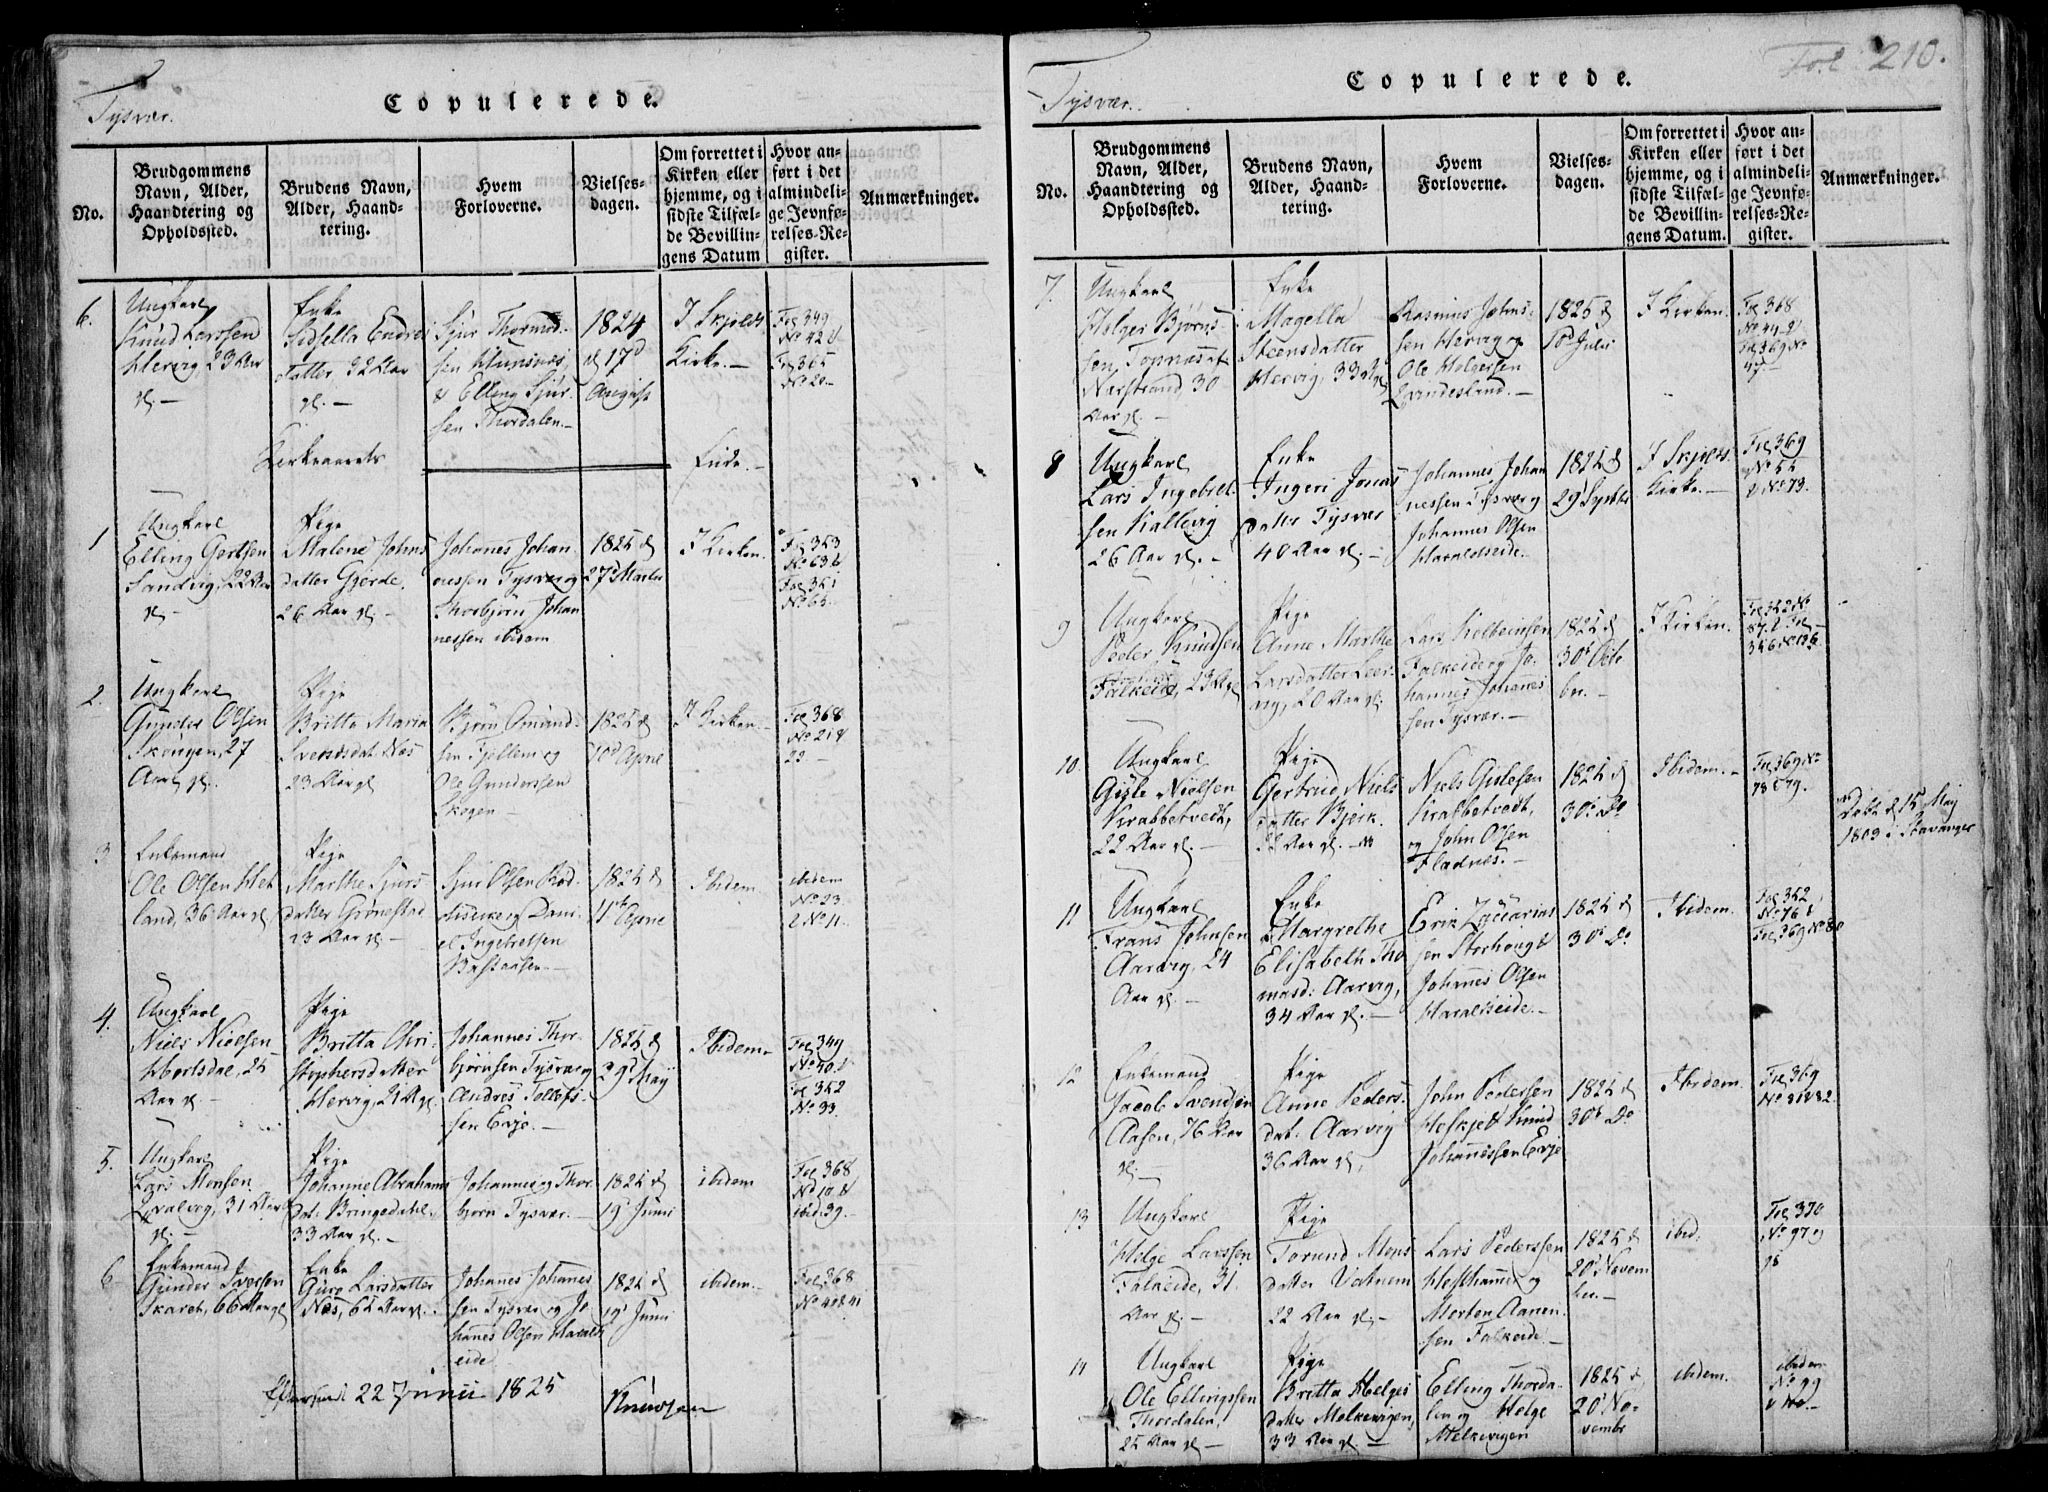 Tysvær.
Copulerede.
No.
Brudgommens Navn, Alder, Haandtering og Opholdssted.
Brudens Navn, Alder, Haandtering.
Hvem Forloverne.
Vielsesdagen.
Om forrettet i Kirken eller hjemme, og i sidste Tilfælde Bevillingens Datum
Hvor anført i det almindelige Jevnførelses-Register.
Anmærkninger.
6.
Ungkarl
Knud Larssen
Hervig 23 Aar
Enke
Sidsella Endres
datter 32 Aar
Sjur Thormod-
sen
& Elling Sjur-
sen Thordalen.
1824
d 17d
August
I Skjolds
Kirke.
Fol 349
No 42 &
Fol 365
No 20
Kirkeaarets
Ende.
1
Ungkarl
Elling Gertsen
Sandvig, 22 Aar
Pige
Malene Johns
datter Gjerde,
26 Aar
Johannes Johan-
nessen Tysvær og
Thorbjørn Johan
nessen ibidem
1825 d
27d Martii
I Kirken.
Fol 353
No 636
Fol 351
No 65.
2.
Ungkarl
Gunder Olsen
Skougen, 27
Aar
Pige
Britta Maria
Svendsdat Næs
23 Aar
Bjørn Omund-
sen og
Ole Gunderssen
Skogen
1825 d
10d April
I Kirken
Fol 368
No 21 &
23
3
Enkemand
Ole Olsen Het
land, 36 Aar
Pige
Marthe Sjurs-
datter Grønestad
23 Aar
Sjur Olsen
og Dani-
el Ingebretsen
1825 d
April
Ibidem
ibidem
No 23
& No 11.
4.
Ungkarl
Niels Nielsen
25
Aar
Pige
Britta Chri-
stophersdatter
Hervig, 21
Johannes Thor-
bjørnsen Tysvær og
Andres Tollefs-
sen Erje.
1825 d
29d Maij
Ibidem
Fol 349
No 40 &
Fol 352
No 33.
5.
Ungkarl
Lars Monsen
31 Aar
Pige
Johanne Abrahams
dat: Bringedahl,
33 Aar
Johannes og Thor-
bjørn Tysvær.
1825 d
19d Junii
ibidem
Fol 368
No 10 &
ibid 39.
6
Enkemand
Gunder Iversen
Skaret, 66 Aar
Enke
Guro Larsdatter
Næs, 65 Aar
Johanes Johannes
sen Tysvær og Jo-
hannes Olsen Haralds
eide
1825 d
19d Junii
ibidem.
Fol 368
No 40 & 41
22 Junii 1825
Knudsen
Fol 210.
Tysvær.
Copulerede.
No.
Brudgommens Navn, Alder, Haandtering og Opholdssted.
Brudens Navn, Alder, Haandtering.
Hvem Forloverne.
Vielsesdagen.
Om forrettet i Kirken eller hjemme, og i sidste Tilfælde Bevillingens Datum.
Hvor anført i det almindelige Jevnførelses-Register.
Anmærkninger.
7.
Ungkarl
Holger Bjørns-
sen, Topnæs af
Narstrand 30
Aar
Enke
Magella
Steensdatter
Hervig, 33
Rasmus Johns-
sen Hervig og
Ole Holgersen
1825 d
10d Julii
I Kirken.
Fol 368
No 44 &
Fol 369 No
47
8
Ungkarl
Lars Ingebret-
sen Kallevig
26 Aar
Enke
Ingeri Jonas
datter Tysvær
40 Aar
Johannes Johan
nessen Tysvær og
Johannes Olsen
Haraldseide.
1825 d
29d Septbr
I Skjolds
Kirke.
Fol 369
No 55
& No 73.
9
Ungkarl
Peder Knudsen
Falkeide, 23
Pige
Anne Marthe
Larsdatter Leer-
vig, 20 Aar
Lars Kolbeinsen
Falkeide og Jo-
hannes Johannes
sen Tysvær.
1825 d
30d Octo
ber.
I Kirken.
Fol 352 No
87 & Fol
346 No 136
10
Ungkarl
Gisle Nielsen
Krabbetvedt,
22 Aar
Pige
Gertrud Niels
datter Bjerk.
22 Aar
Niels Gislesen
Krabbetvedt,
og John Olsen
Fladnes.
1825 d
30d Do
Ibidem.
Fol 369 No
78 & 79.
Døbt d 15 Maij
1803 i Stavanger
11
Ungkarl
Frans Johnsen
Aarvig, 24
Aar
Enke
Margrethe
Elisabeth Tho
masd: Aarvig,
34 Aar
Erik Zacarias
sen Storhoug &
Johannes Olsen
Haraldseide.
1825 d
30d Do
Ibidem.
Fol 352
No 76 &
Fol 369 No 80
12
Enkemand
Jacob Svendsen
Aasen, 76 Aar
Pige
Anne Peders-
dat: Aarvig
36 Aar
John Pedersen
Heskjet Knud
Johannessen Erje
1825 d
30d Do
Ibidem.
Fol 369
No 81 & 82.
13
Ungkarl
Helge Larssen
Falkeide, 31.
Aar
Pige
Torund Mons
datter Vatnem
22 Aar
Lars Pederssen
Hesthammer og
Morten Aanen-
sen Falkeide.
1825 d
20d Novem
ber.
ibid.
Fol 370
No 97 og
98
14
Ungkarl
Ole Ellingssen
Thordalen,
25 Aar
Pige
Britta Helges
datter Melkevigen,
33 Aar
Elling Thorda-
len og Helge
Melkevigen
1825 d
20d No-
vembr
ibidem.
ibidem
No 99
& 100.